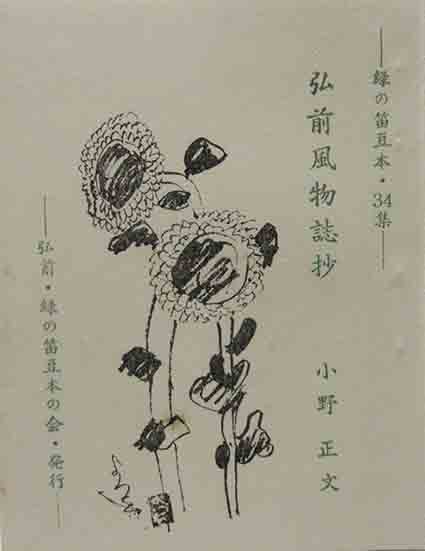 緑の笛豆本・34集
弘前風物誌抄
小野正文
弘前・緑の笛豆本の会・発行